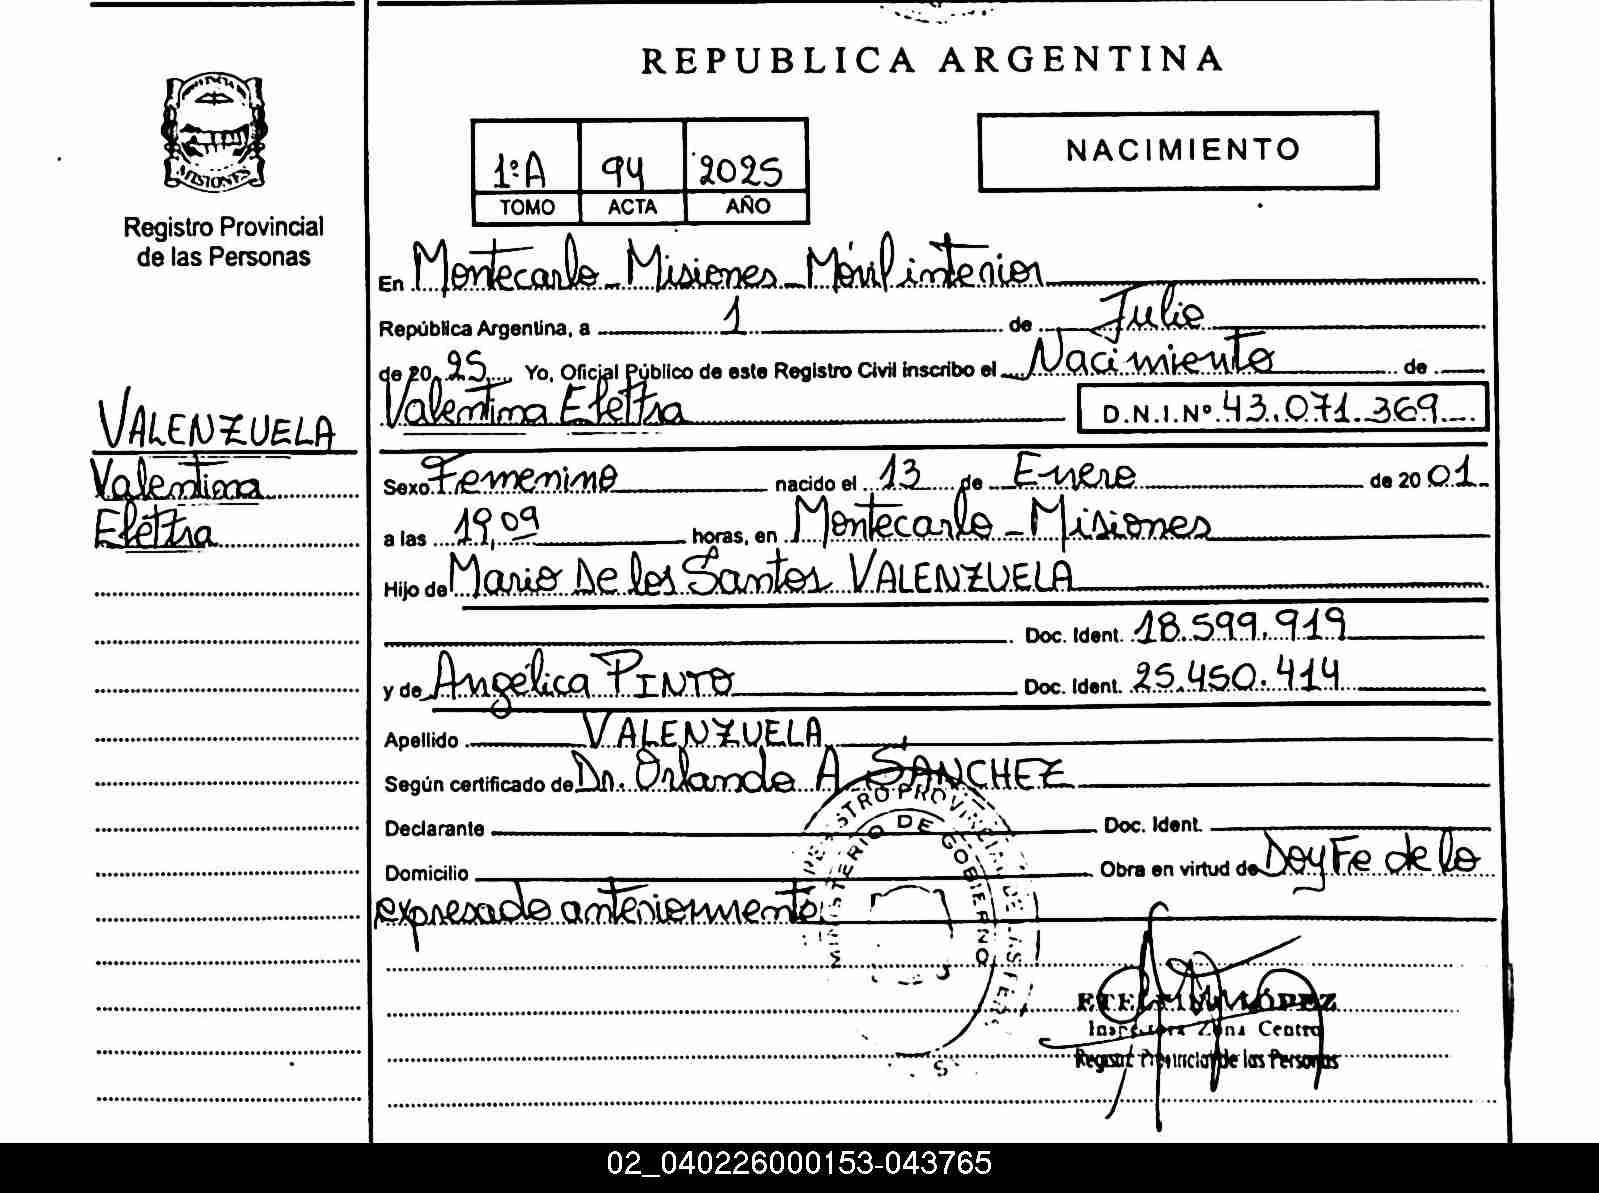 REPUBLICA ARGENTINA
MISIONES
Registro Provincial
de las Personas
1ºA 94 2025
TOMO ACTA AÑO
NACIMIENTO
En Montecarlo - Misiones - Móvil interior
República Argentina, a 1 de Julio
de 20 25 Yo, Oficial Público de este Registro Civil inscribo el Nacimiento de
Valentina Elettra D.N.I.Nº 43.071.369
VALENZUELA
Valentina
Elettra
Sexo Femenino nacido el 13 de Enero de 20 01
a las 19,09 horas, en Montecarlo - Misiones
Hijo de Mario De los Santos VALENZUELA
Doc. Ident. 18.599.919
y de Angélica PINTO Doc. Ident. 25.450.414
Apellido VALENZUELA
Según certificado de Dr. Orlando A SANCHEZ
Declarante Doc. Ident.
Domicilio Obra en virtud de Doy Fe de lo
expresado anteriormente
REGISTRO PROVINCIAL DE LAS PERS
MINISTERIO DE GOBIERNO
LÓPEZ
Inspectora Zona Centro
Registro Provincial de las Personas
02_040226000153-043765